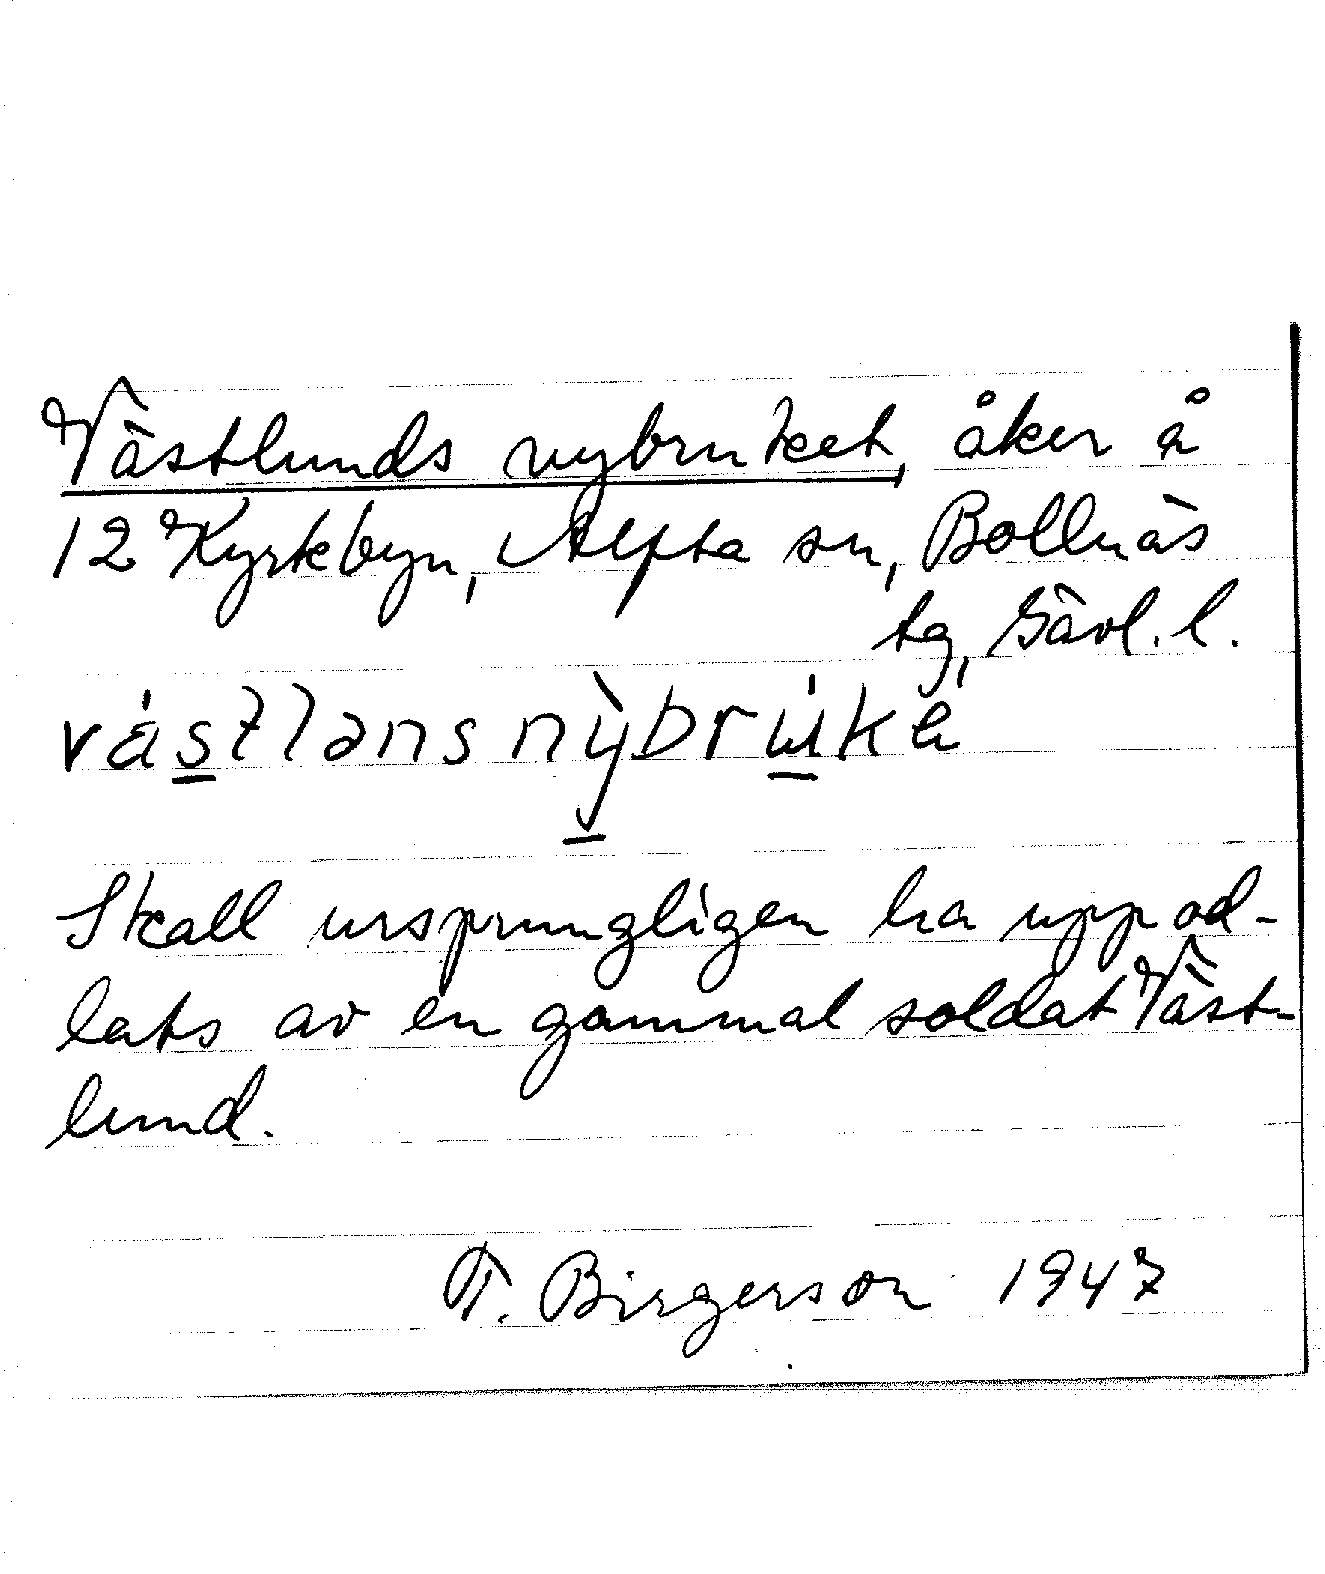 Västlunds nybruket, åker å
12 Kyrkbyn, Alfta sn, Bollnäs
tg, Gävl. l.
västlans nỳbrúkä
Skall ursprungligen ha uppod-
lats av en gammal soldat Väst-
lund.
T. Birgerson 1947